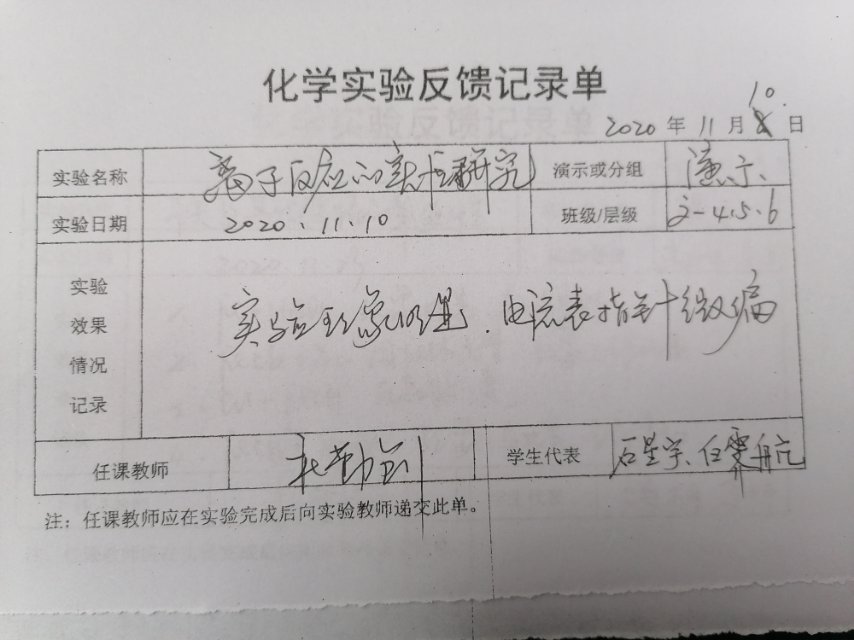 化学实验反馈记录单
2020 年 11 月 10 日
实验名称 离子反应的实验研究 演示或分组 演示
实验日期 2020.11.10 班级/层级 -4.5.6
实验
效果
情况
记录
实验现象明显.电流表指针微偏
任课教师 学生代表 石星宇、任霁航
注：任课教师应在实验完成后向实验教师递交此单。